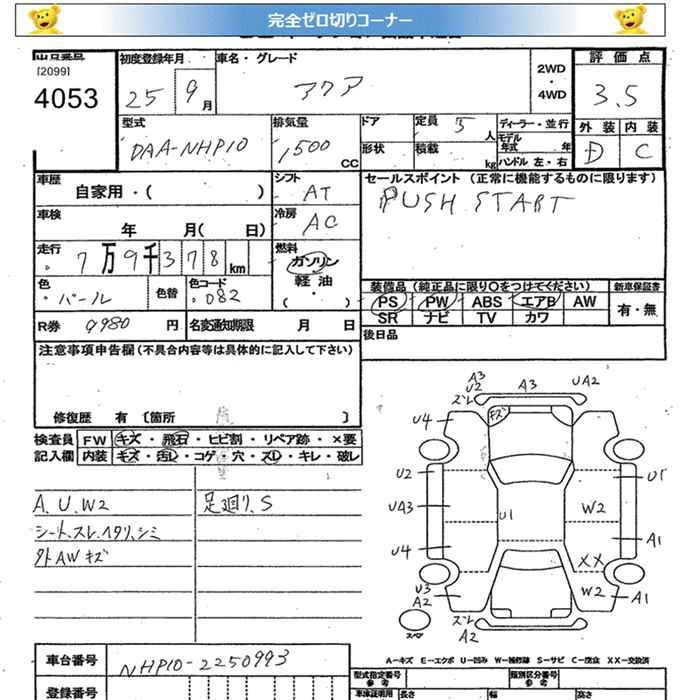 完全ゼロ切りコーナー
出品番号 初度登録年月 車名・グレード 評価点
[2099]
4053 25 9月 アクア 2WD・4WD 3.5
外装 内装
D C
型式 排気量 ドア 定員 5人 ディーラー・並行
DAA-NHP10 1,500cc 形状 積載 kg モデル年式 年
ハンドル 左・右
車歴 シフト セールスポイント (正常に機能するものに限ります)
自家用・( ) AT PUSH START
車検 冷房
年 月( 日) AC
走行 燃料
7万9千378km ガソリン・軽油・( )
色 色替 色コード 装備品 (純正品に限り○をつけてください) 新車保証書
パール 082 PS PW ABS エアB AW 有・無
SR ナビ TV カワ
R券 9980円 名変通知期限 月 日 後日品
注意事項申告欄(不具合内容等は具体的に記入して下さい)
修復歴 有 〔箇所 〕
検査員 FW キズ・飛石・ヒビ割・リペア跡・×要
記入欄 内装 キズ・汚レ・コゲ・穴・スレ・キレ・破レ
A、U、W2 足廻り、S
シート、スレ、ヘタリ、シミ
外AWキズ
A3
U2
ズレ A3 UA2
U4 キズ
U2 U1
UA3 U1 W2
U4 A1
XX
U3
A2 W2 A1
スペア ズレ
A2
A-キズ E-エクボ U-凹み W-補修跡 S-サビ C-腐食 XX-交換済
車台番号 NHP10-2250993
型式指定番号 参考 類別区分番号 参考
登録番号 車庫証明用 長さ 幅 高さ